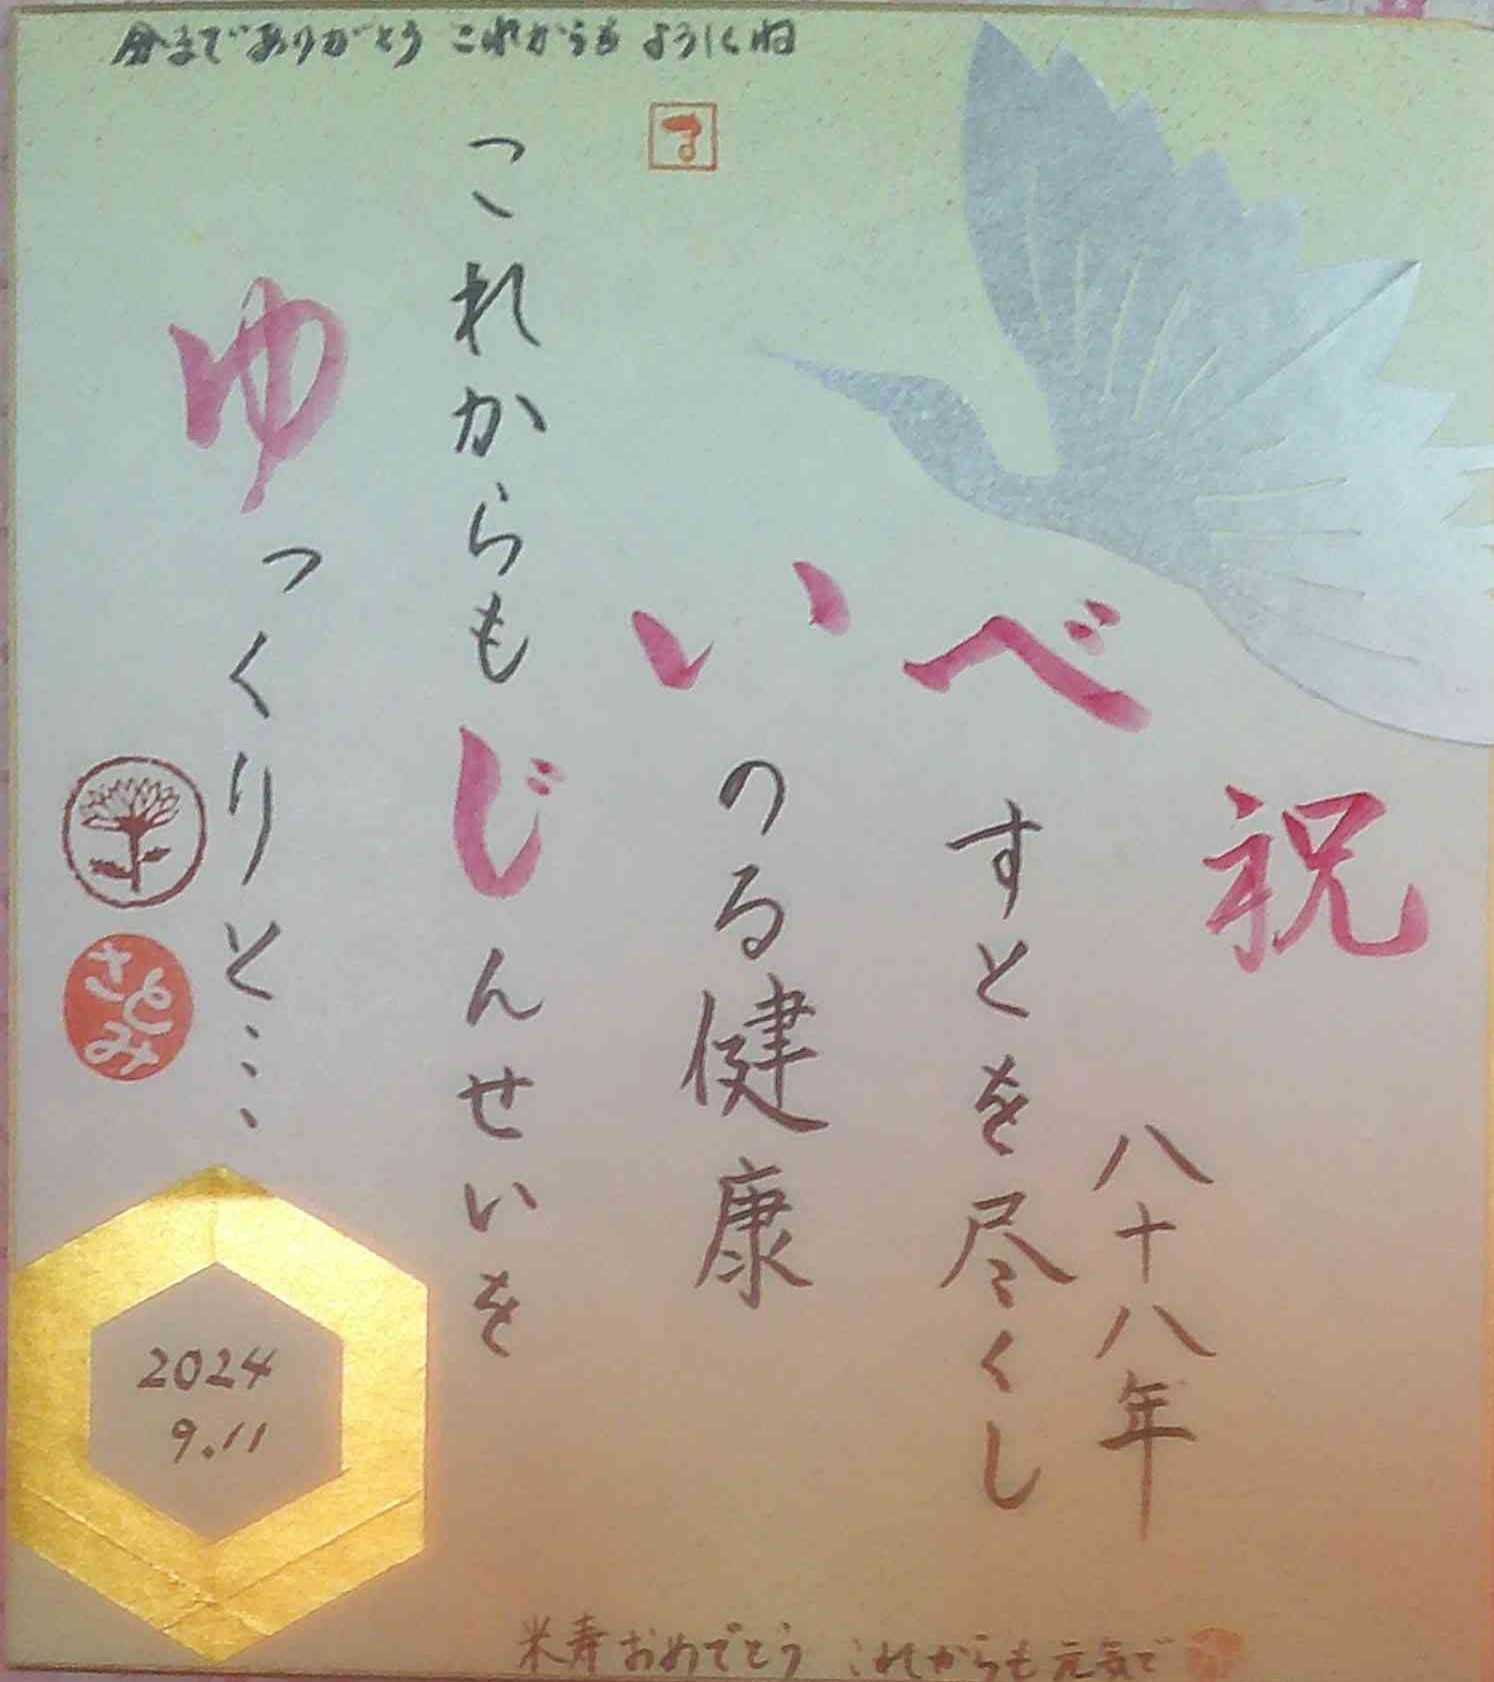 今までありがとう これからも ようしくね
す
祝
八十八年
べすとを尽くし
いのる健康
これからもじんせいを
ゆっくりと…
さとみ
2024
9.11
米寿おめでとう これからも元気で